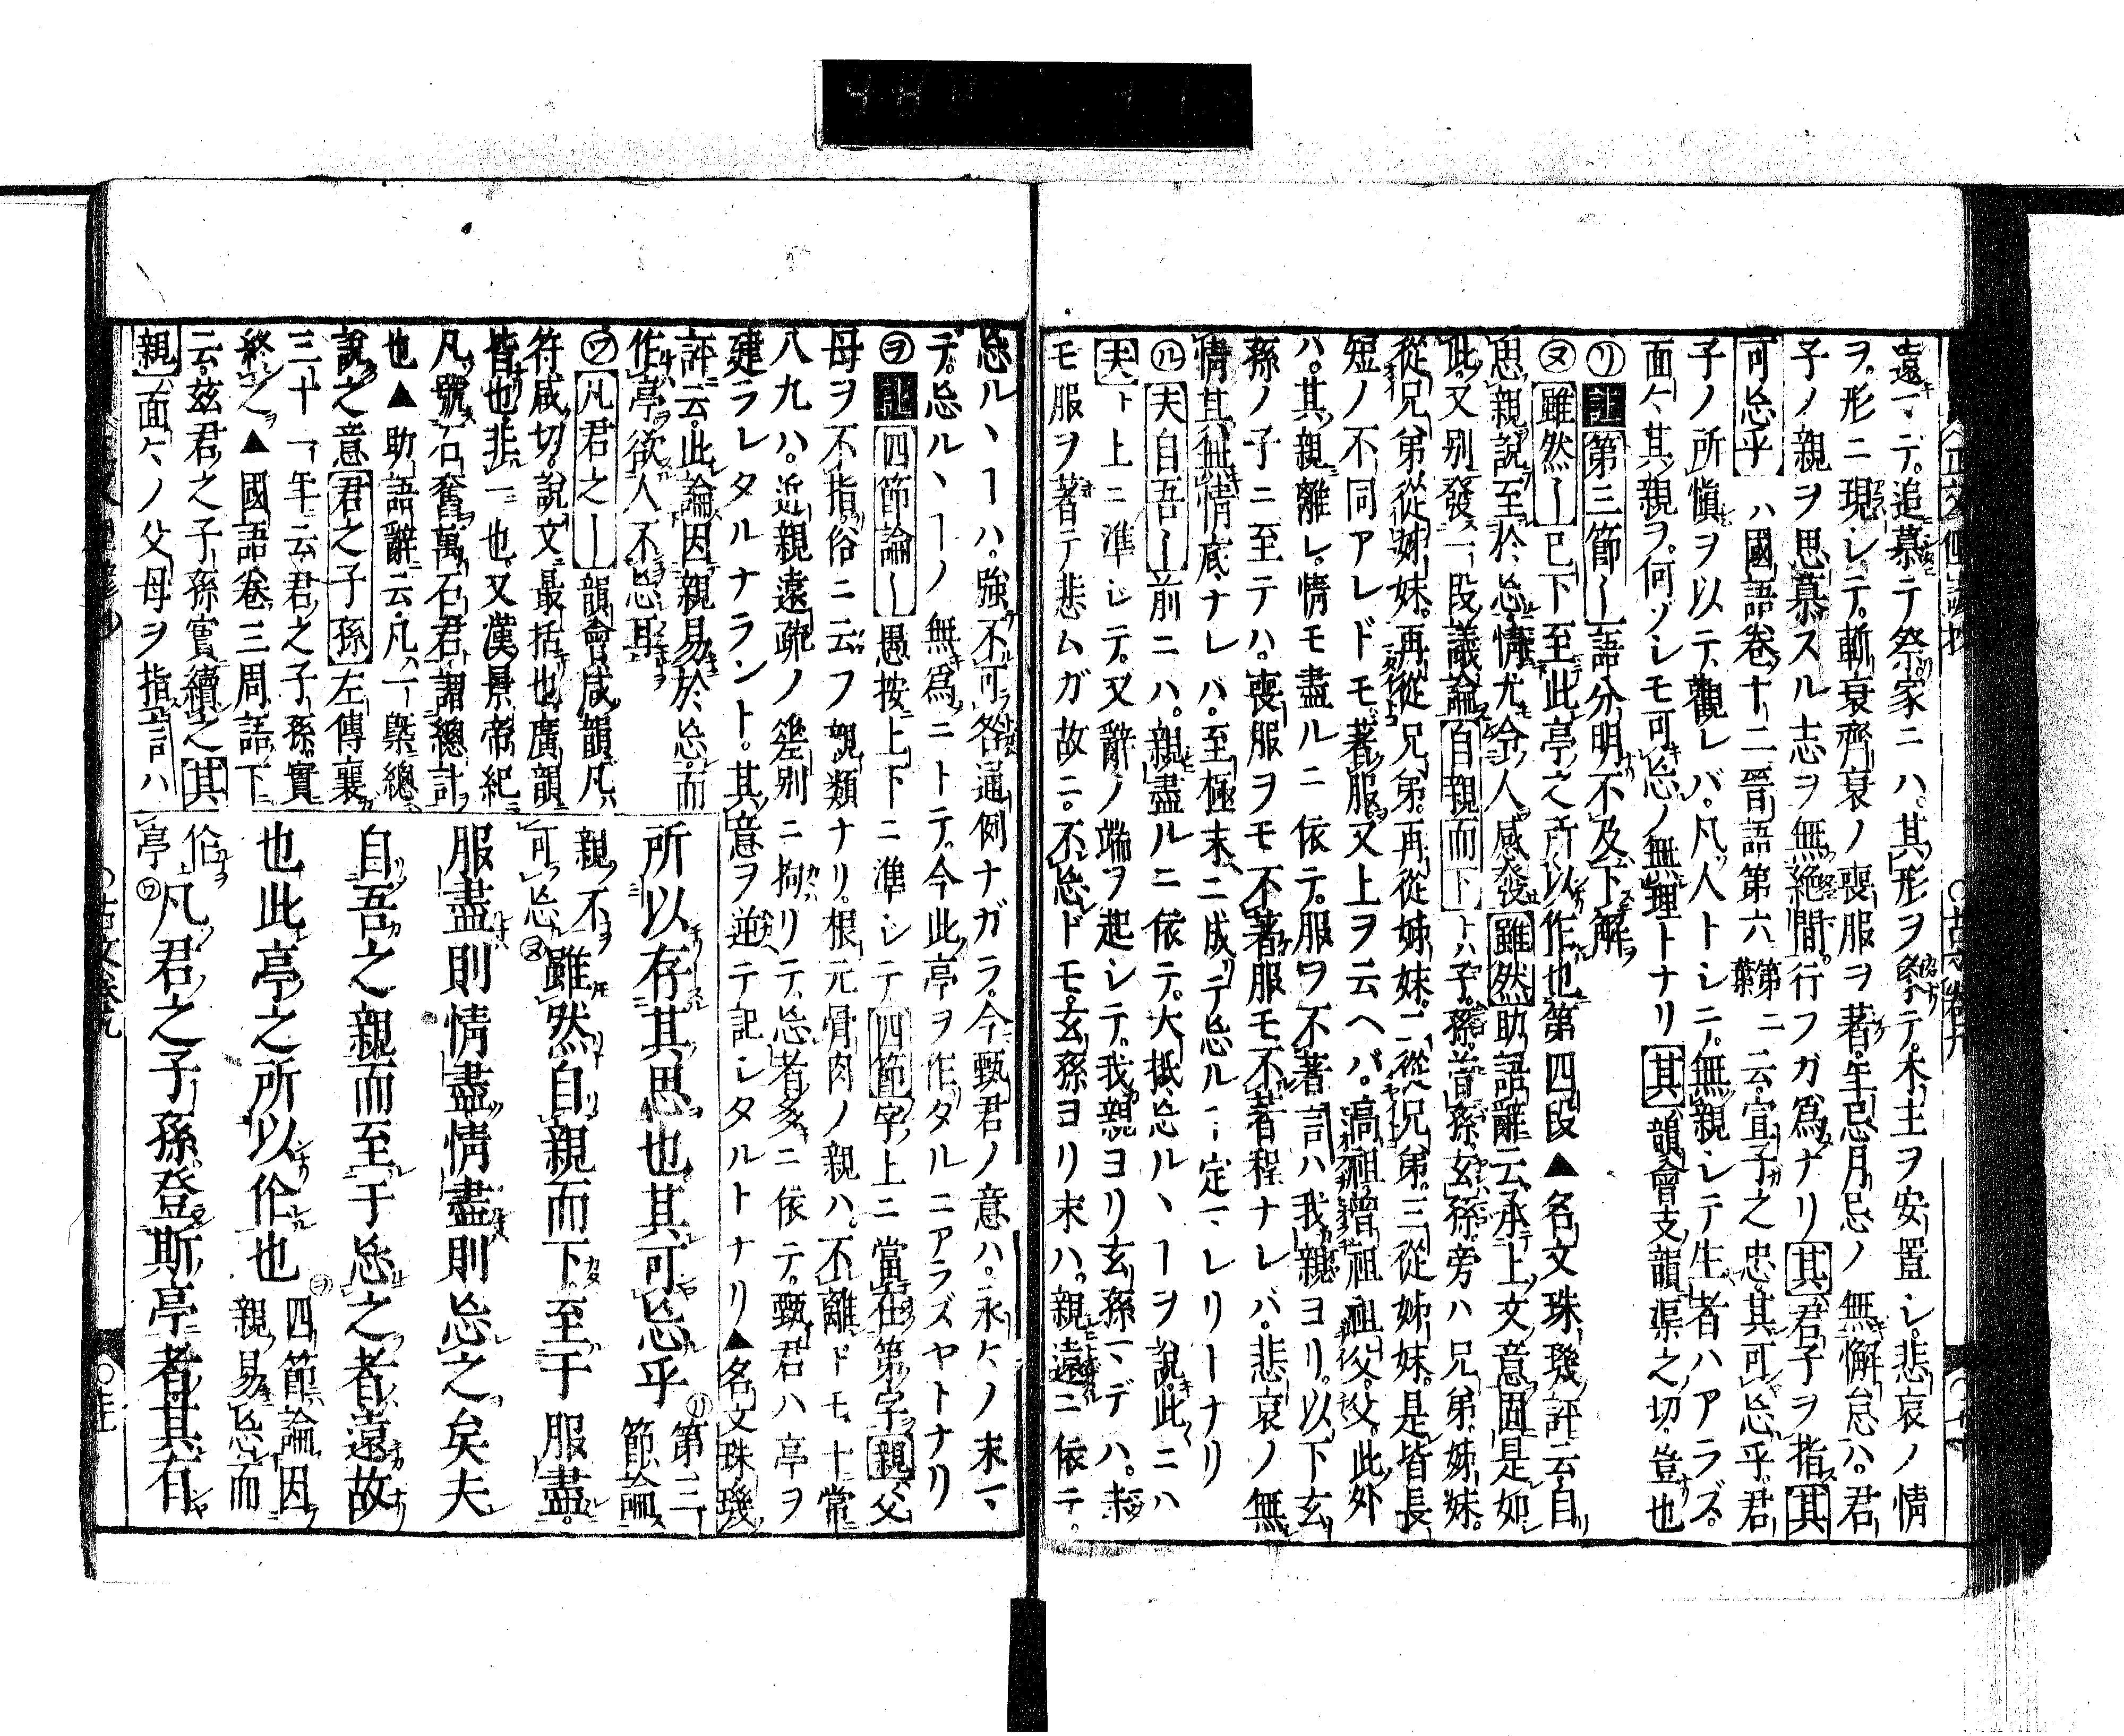 遠マデ追慕テ祭家ニハ其形ヲ祭テ木主ヲ安置シ悲哀ノ情
ヲ形ニ現シテ斬衰齊衰ノ喪服ヲ著年忌月忌ノ無懈怠ハ君
子ノ親ヲ思慕スル志ヲ無絶間行フガ爲ナリ其君子ヲ指其
可忘乎ハ國語巻十二晉語第六第二葉云宣子之忠其可忘乎君
子ノ所愼ヲ以テ觀レバ凡人トシニ無親シテ生者ハアラズ
面々其親ヲ何ゾシモ可忘ノ無理トナリ其韻會支韻渠之切豈也
リ註第三節｜語分明不及下解
ヌ雖然｜已下至此亭之所以作也第四段▲名文珠璣評云自
思親說至於忘情尤令人感發雖然助語辭云承上文意固是如
此又別發一段議論自親而下トハ子孫曾孫玄孫旁ハ兄弟姊妹
從兄弟從姊妹再從兄弟再從姊妹二從兄弟三從姊妹是皆長
短ノ不同アレドモ著服又上ヲ云ヘバ高祖曾祖祖父父此外
ハ其親離レ情モ盡ルニ依テ服ヲ不著言ハ我親ヨリ以下玄
孫ノ子ニ至テハ喪服ヲモ不著服モ不著程ナレバ悲哀ノ無
情其無情底ナレバ至極末ニ成テ忘ルニ定マレリーナリ
ル夫自吾｜前ニハ親盡ルニ依テ大抵忘ルヽーヲ說此ニハ
夫ト上ニ準シテ又辭ノ端ヲ起シテ我親ヨリ玄孫マデハ未
モ服ヲ著テ悲ムガ故ニ不忘ドモ玄孫ヨリ末ハ親遠ニ依テ
忘ルヽーハ強不可咎通例ナガラ今甄君ノ意ハ永々ノ末マ
デ忘ルヽーノ無爲ニトテ今此亭ヲ作タルニアラズヤトナリ
ヲ註四節論｜愚按上下ニ準シテ四節字上ニ當在第字親父
母ヲ不指俗ニ云フ親類ナリ根元骨肉ノ親ハ不離ドモ十常
八九ハ近親遠疏ノ差別ニ拘リテ忘者多ニ依テ甄君ハ亭ヲ
建ラレタルナラント其意ヲ逆テ記シタルトナリ▲名文珠璣
評云此論因親易於忘而
作亭欲人不忘耳
ワ凡君之｜韻會咸韻凡
符咸切說文最括也廣韻
皆也非一也又漢景帝紀
凡號石奮萬石君謂總計
也▲助語辭云凡一槩總
說之意君之子孫左傳襄
三十一年云君之子孫實
終之▲國語巻三周語下
云茲君之子孫實續之其
親面々ノ父母ヲ指言ハ
所以存其思也其可忘乎リ第三節論
親不可忘ヌ雖然自親而下至于服盡
服盡則情盡情盡則忘之矣夫
自吾之親而至于忘之者遠故
也此亭之所以作也ヲ四節論因親易忘而
作亭ワ凡君之子孫登斯亭者其有